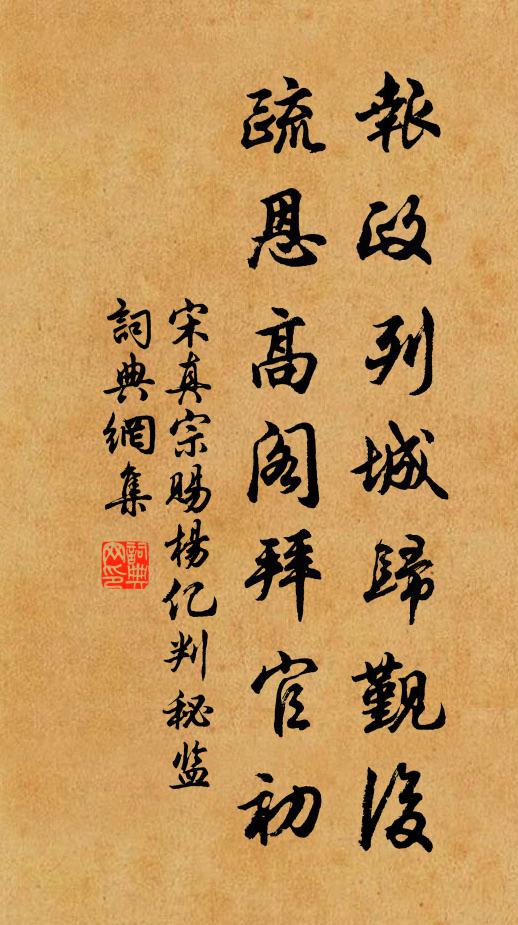 報政列城歸覲後
疏恩高閣拜官初
宋真宗賜楊億判秘监
詞典網集
詞典網印